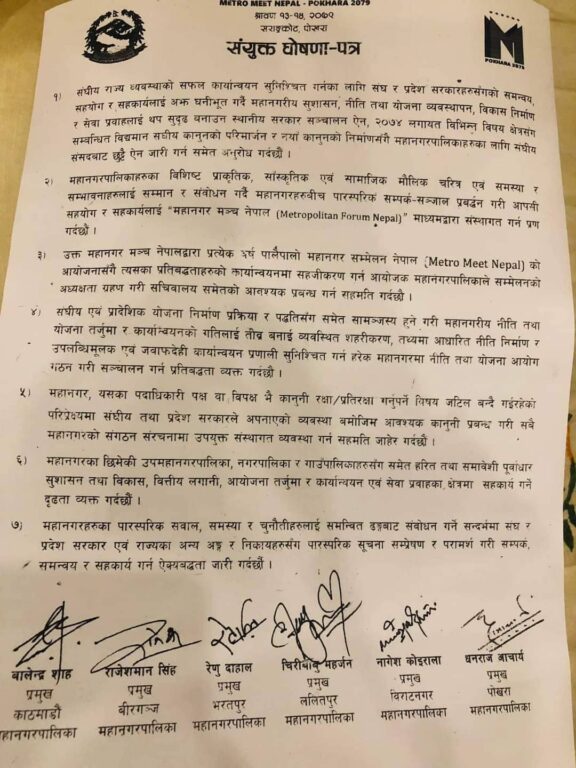 METRO MEET NEPAL - POKHARA 2079
श्रावण १३-१४, २०७९
सराङकोट, पोखरा
संयुक्त घोषणा-पत्र
M
POKHARA 2079
१) संघीय राज्य व्यवस्थाको सफल कार्यान्वयन सुनिश्चित गर्नका लागि संघ र प्रदेश सरकारहरुसँगको समन्वय,
सहयोग र सहकार्यलाई अझ घनीभूत गर्दै महानगरीय सुशासन, नीति तथा योजना व्यवस्थापन, विकास निर्माण
र सेवा प्रवाहलाई थप सुदृढ बनाउन स्थानीय सरकार सञ्चालन ऐन, २०७४ लगायत विभिन्न विषय क्षेत्रसँग
सम्बन्धित विद्यमान संघीय कानुनको परिमार्जन र नयाँ कानुनको निर्माणसँगै महानगरपालिकाहरुका लागि संघीय
संसदबाट छुट्टै ऐन जारी गर्न समेत अनुरोध गर्दछौं ।
२) महानगरपालिकाहरुका विशिष्ट प्राकृतिक, सांस्कृतिक एवं सामाजिक मौलिक चरित्र एवं समस्या र
सम्भावनाहरुलाई सम्मान र संवोधन गर्दै महानगरहरुवीच पारस्परिक सम्पर्क-सञ्जाल प्रबर्द्धन गरी आपसी
सहयोग र सहकार्यलाई "महानगर मञ्च नेपाल (Metropolitan Forum Nepal)" माध्यमद्वारा संस्थागत गर्न प्रण
गर्दछौं ।
३) उक्त महानगर मञ्च नेपालद्वारा प्रत्येक वर्ष पालैपालो महानगर सम्मेलन नेपाल (Metro Meet Nepal) को
आयोजनासँगै त्यसका प्रतिबद्धताहरुको कार्यान्वयनमा सहजीकरण गर्न आयोजक महानगरपालिकाले सम्मेलनको
अध्यक्षता ग्रहण गरी सचिवालय समेतको आवश्यक प्रबन्ध गर्न सहमति गर्दछौं ।
४) संघीय एवं प्रादेशिक योजना निर्माण प्रक्रिया र पद्धतिसँग समेत सामञ्जस्य हुने गरी महानगरीय नीति तथा
योजना तर्जुमा र कार्यान्वयनको गतिलाई तीव्र बनाई व्यवस्थित शहरीकरण, तथ्यमा आधारित नीति निर्माण र
उपलब्धिमूलक एवं जवाफदेही कार्यान्वयन प्रणाली सुनिश्चित गर्न हरेक महानगरमा नीति तथा योजना आयोग
गठन गरी सञ्चालन गर्न प्रतिबद्धता व्यक्त गर्दछौं ।
५) महानगर, यसका पदाधिकारी पक्ष वा विपक्ष भै कानुनी रक्षा/प्रतिरक्षा गर्नुपर्ने विषय जटिल बन्दै गईरहेको
परिप्रेक्ष्यमा संघीय तथा प्रदेश सरकारले अपनाएको व्यवस्था बमोजिम आवश्यक कानुनी प्रबन्ध गरी सबै
महानगरको संगठन संरचनामा उपयुक्त संस्थागत व्यवस्था गर्न सहमति जाहेर गर्दछौं ।
६) महानगरका छिमेकी उपमहानगरपालिका, नगरपालिका र गाउँपालिकाहरुसँग समेत हरित तथा समावेशी पूर्वाधार
सुशासन तथा विकास, वित्तीय लगानी, आयोजना तर्जुमा र कार्यान्वयन एवं सेवा प्रवाहका क्षेत्रमा सहकार्य गर्ने
दृढता व्यक्त गर्दछौं ।
७) महानगरहरुका पारस्परिक सवाल, समस्या र चुनौतीहरुलाई समन्वित ढङ्गबाट संबोधन गर्ने सन्दर्भमा संघ र
प्रदेश सरकार एवं राज्यका अन्य अङ्ग र निकायहरुसँग पारस्परिक सूचना सम्प्रेषण र परामर्श गरी सम्पर्क,
समन्वय र सहकार्य गर्न ऐक्यबद्धता जारी गर्दछौं ।
बालेन्द्र शाह राजेशमान सिंह रेणु दाहाल चिरीबाबु महर्जन नागेश कोइराला धनराज आचार्य
प्रमुख प्रमुख प्रमुख प्रमुख प्रमुख प्रमुख
काठमाडौं बीरगञ्ज भरतपुर ललितपुर विराटनगर पोखरा
महानगरपालिका महानगरपालिका महानगरपालिका महानगरपालिका महानगरपालिका महानगरपालिका